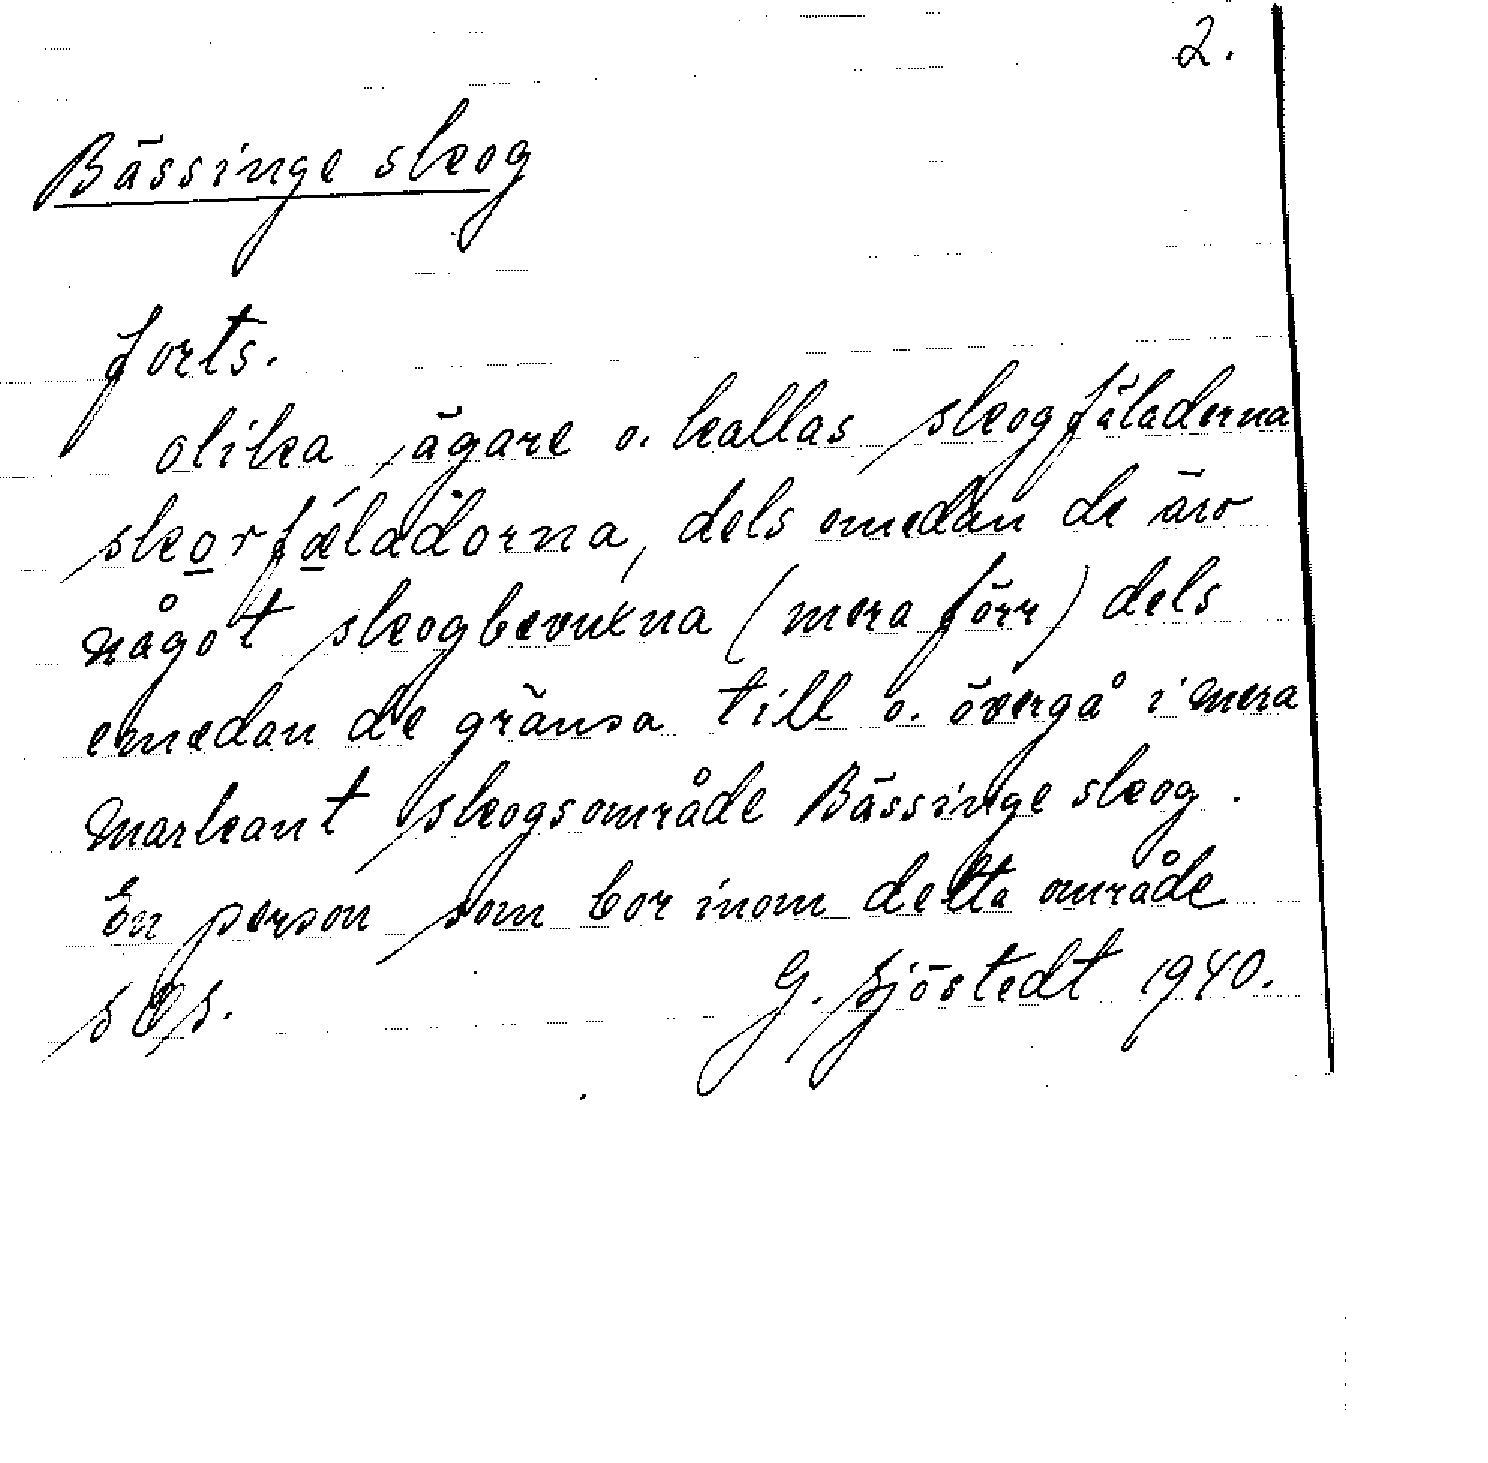 2.
Bässinge skog
forts.
olika ägare o. kallas skogfäladerna
skorfælådorna, dels emedan de äro
något skogbevuxna (mera förr) dels
emedan de gränsa till o. övergå i mera
markant skogsområde Bässinge skog.
En person som bor inom detta område
G. Sjöstedt 1940.